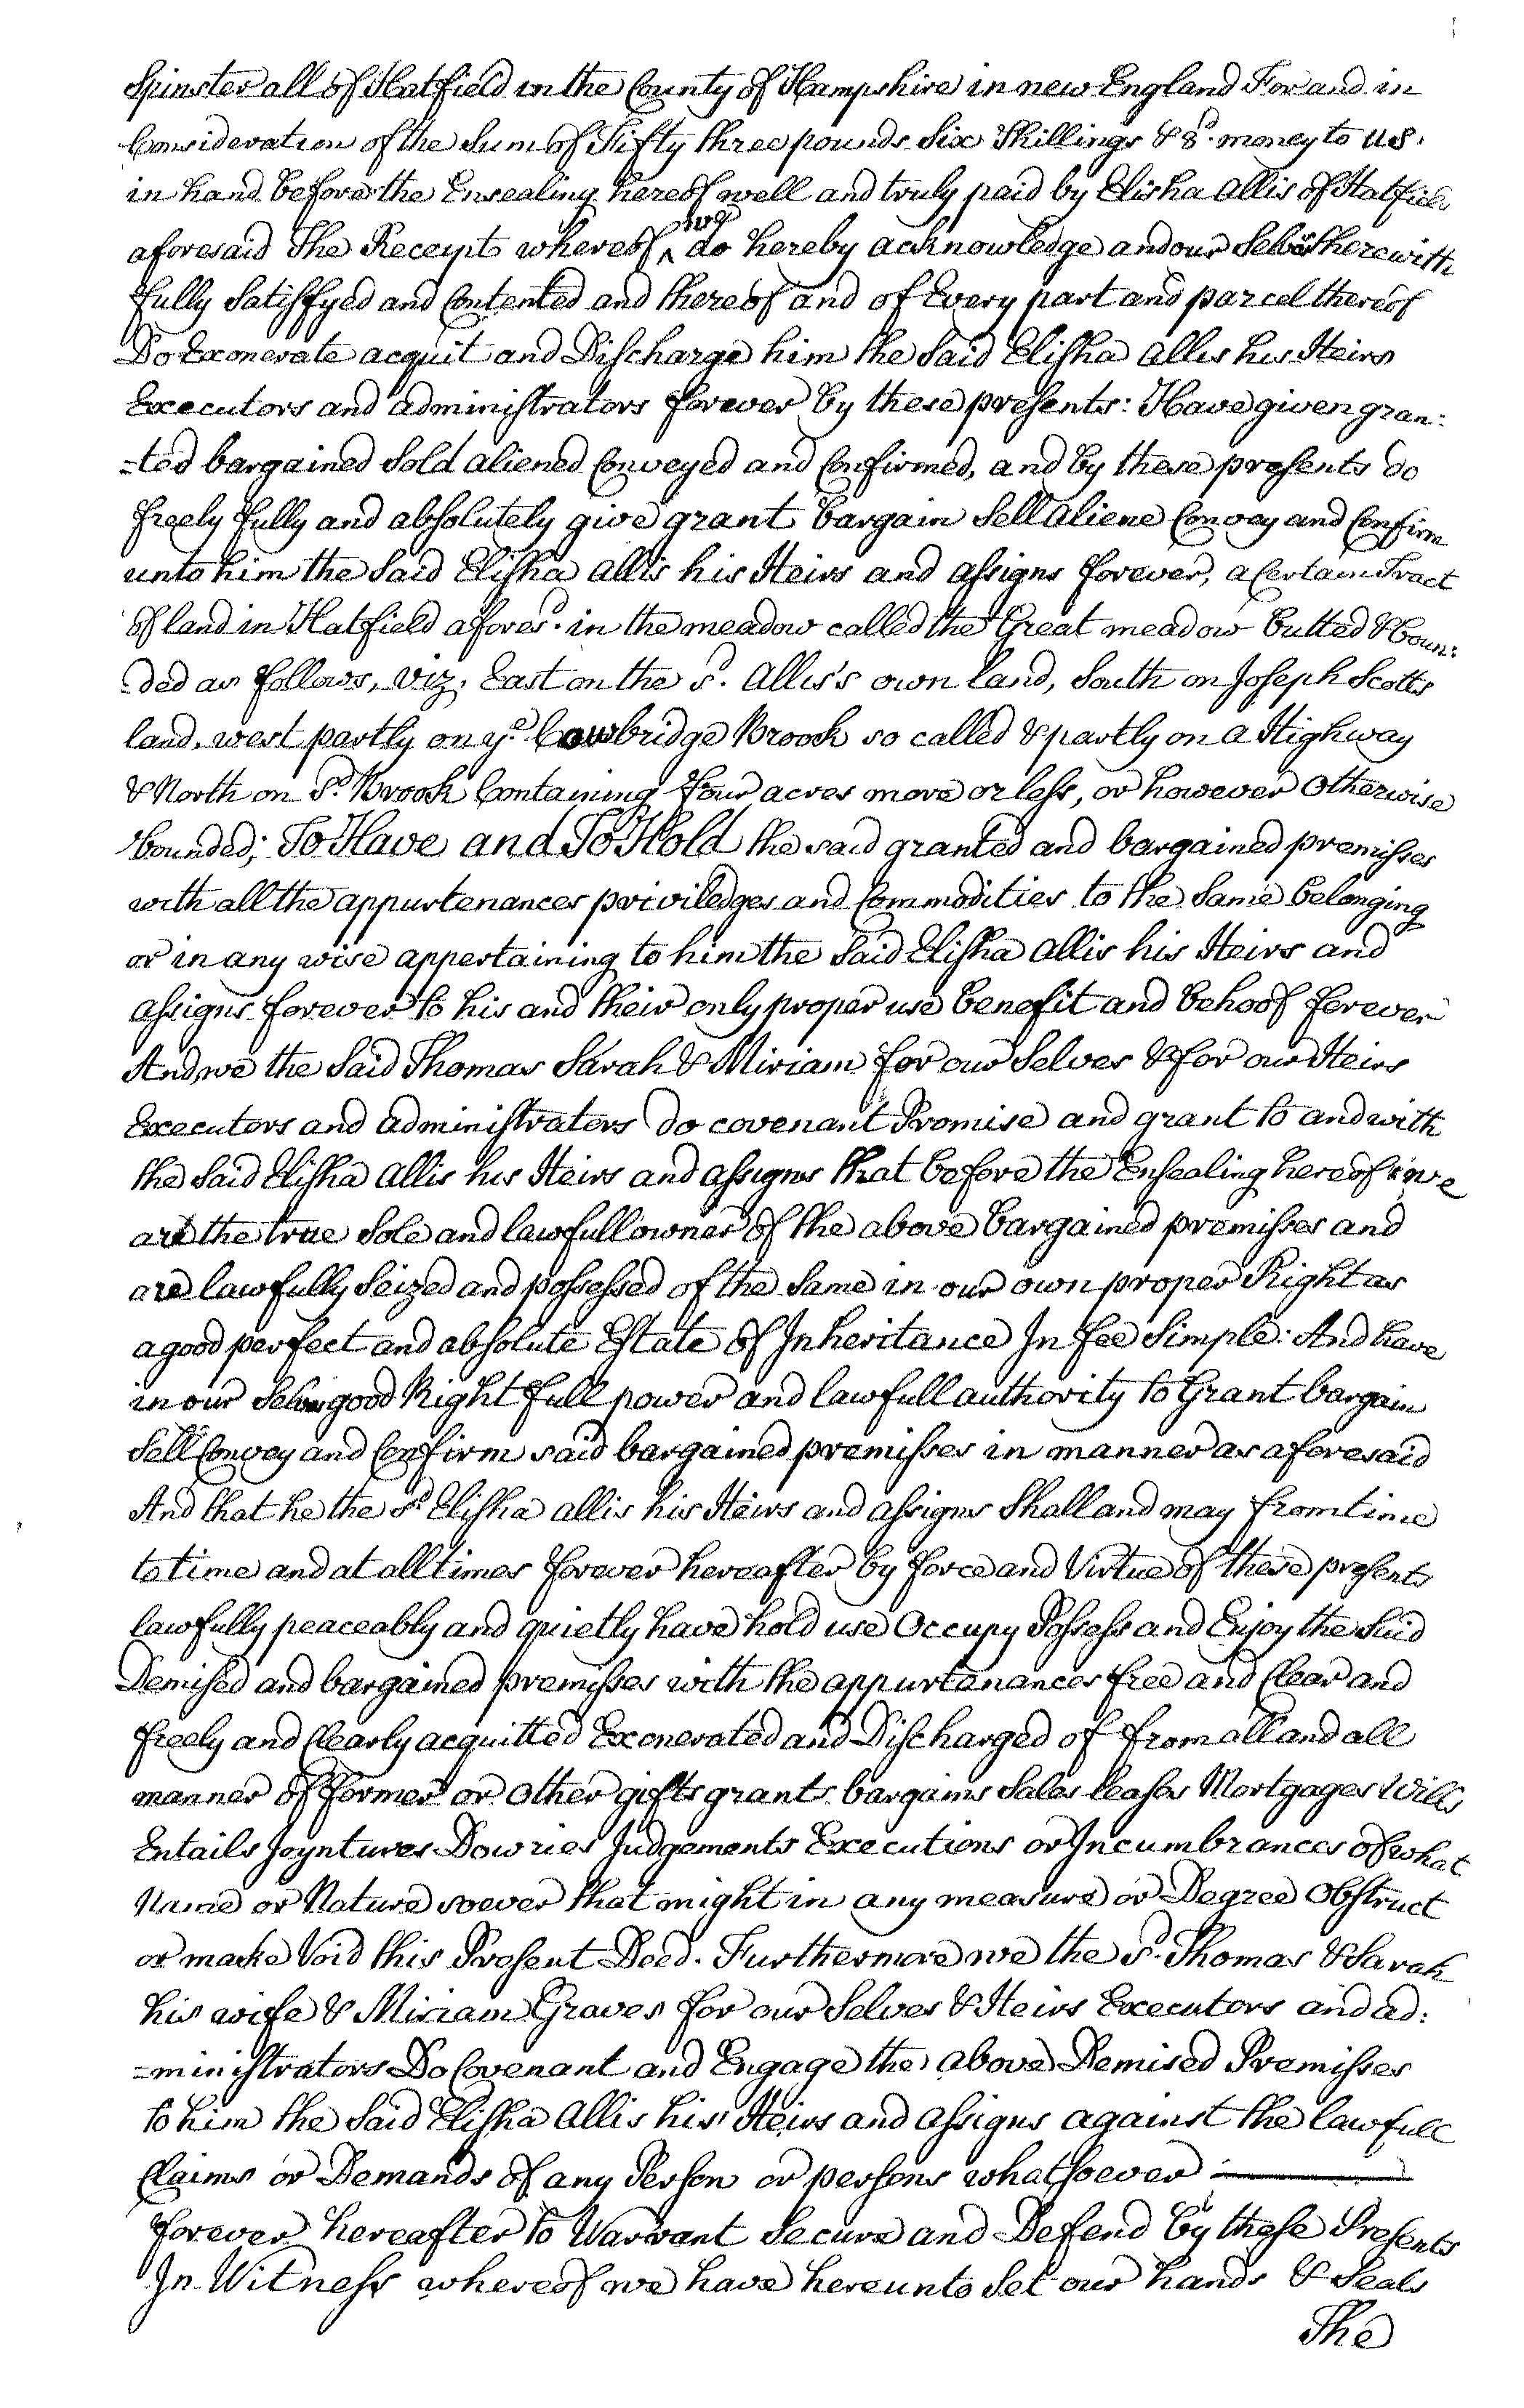 Spinster all of Hatfield in the County of Hampshire in new England For and in
Consideration of the Sum of Fifty three pounds Six Shillings & 8d. money to us.
in hand before the Ensealing hereof well and truly paid by Elisha Allis of Hatfield
aforesaid The Receipt whereof ^we do hereby acknowledge and our Selves therewith
fully Satisfyed and Contented and thereof and of Every part and parcel thereof
Do Exonerate acquit and Discharge him the Said Elisha Allis his Heirs
Executors and administrators forever by these presents: Have given gran:
=ted bargained Sold aliened Conveyed and Confirmed, and by these presents do
freely fully and absolutely give grant bargain Sell aliene Convey and Confirm
unto him the Said Elisha Allis his Heirs and assigns forever, a Certain Tract
of land in Hatfield afores.d in the meadow called the Great meadow butted & boun:
=ded as follows, viz. East on the s.d Allis's own land, South on Joseph Scotts
land, west partly on y.e Cowbridge Brook so called & partly on a Highway
& North on s.d Brook Containing four acres more or less, or however Otherwise
bounded; To Have and To Hold the said granted and bargained premisses
with all the appurtenances priviledges and Commodities to the Same belonging
or in any wise appertaining to him the Said Elisha Allis his Heirs and
assigns forever to his and their only proper use benefit and behoof forever
And we the Said Thomas Sarah & Miriam for our Selves & for our Heirs
Executors and administrators do covenant Promise and grant to and with
the Said Elisha Allis his Heirs and assigns that before the Ensealing hereof we
are the true Sole and lawfull owners of the above bargained premisses and
are lawfully Seized and possessed of the Same in our own proper Right as
a good perfect and absolute Estate of Inheritance In fee Simple: And have
in our Selves good Right full power and lawfull authority to Grant bargain
Sell Convey and Confirm said bargained premisses in manner as aforesaid
And that he the s.d Elisha allis his Heirs and assigns Shall and may from time
to time and at all times forever hereafter by force and Virtue of these presents
lawfully peaceably and quietly have hold use Occupy Possess and Enjoy the Said
Demised and bargained premisses with the appurtenances free and Clear and
freely and Clearly acquitted Exonerated and Discharged of from all and all
manner of former or other gifts grants bargains Sales leases Mortgages Wills
Entails Joyntures Dowries Judgements Executions or Incumbrances of what
Name or Nature soever that might in any measure or Degree Obstruct
or make Void this Present Deed. Furthermore we the s.d Thomas & Sarah
his wife & Miriam Graves for our Selves & Heirs Executors and ad:
=ministrators Do Covenant and Engage the above Demised Premisses
to him the Said Elisha Allis his Heirs and assigns against the lawfull
Claims or Demands of any Person or persons whatsoever
forever hereafter to Warrant Secure and Defend by these Presents
In Witness whereof we have hereunto Set our hands & Seals
The